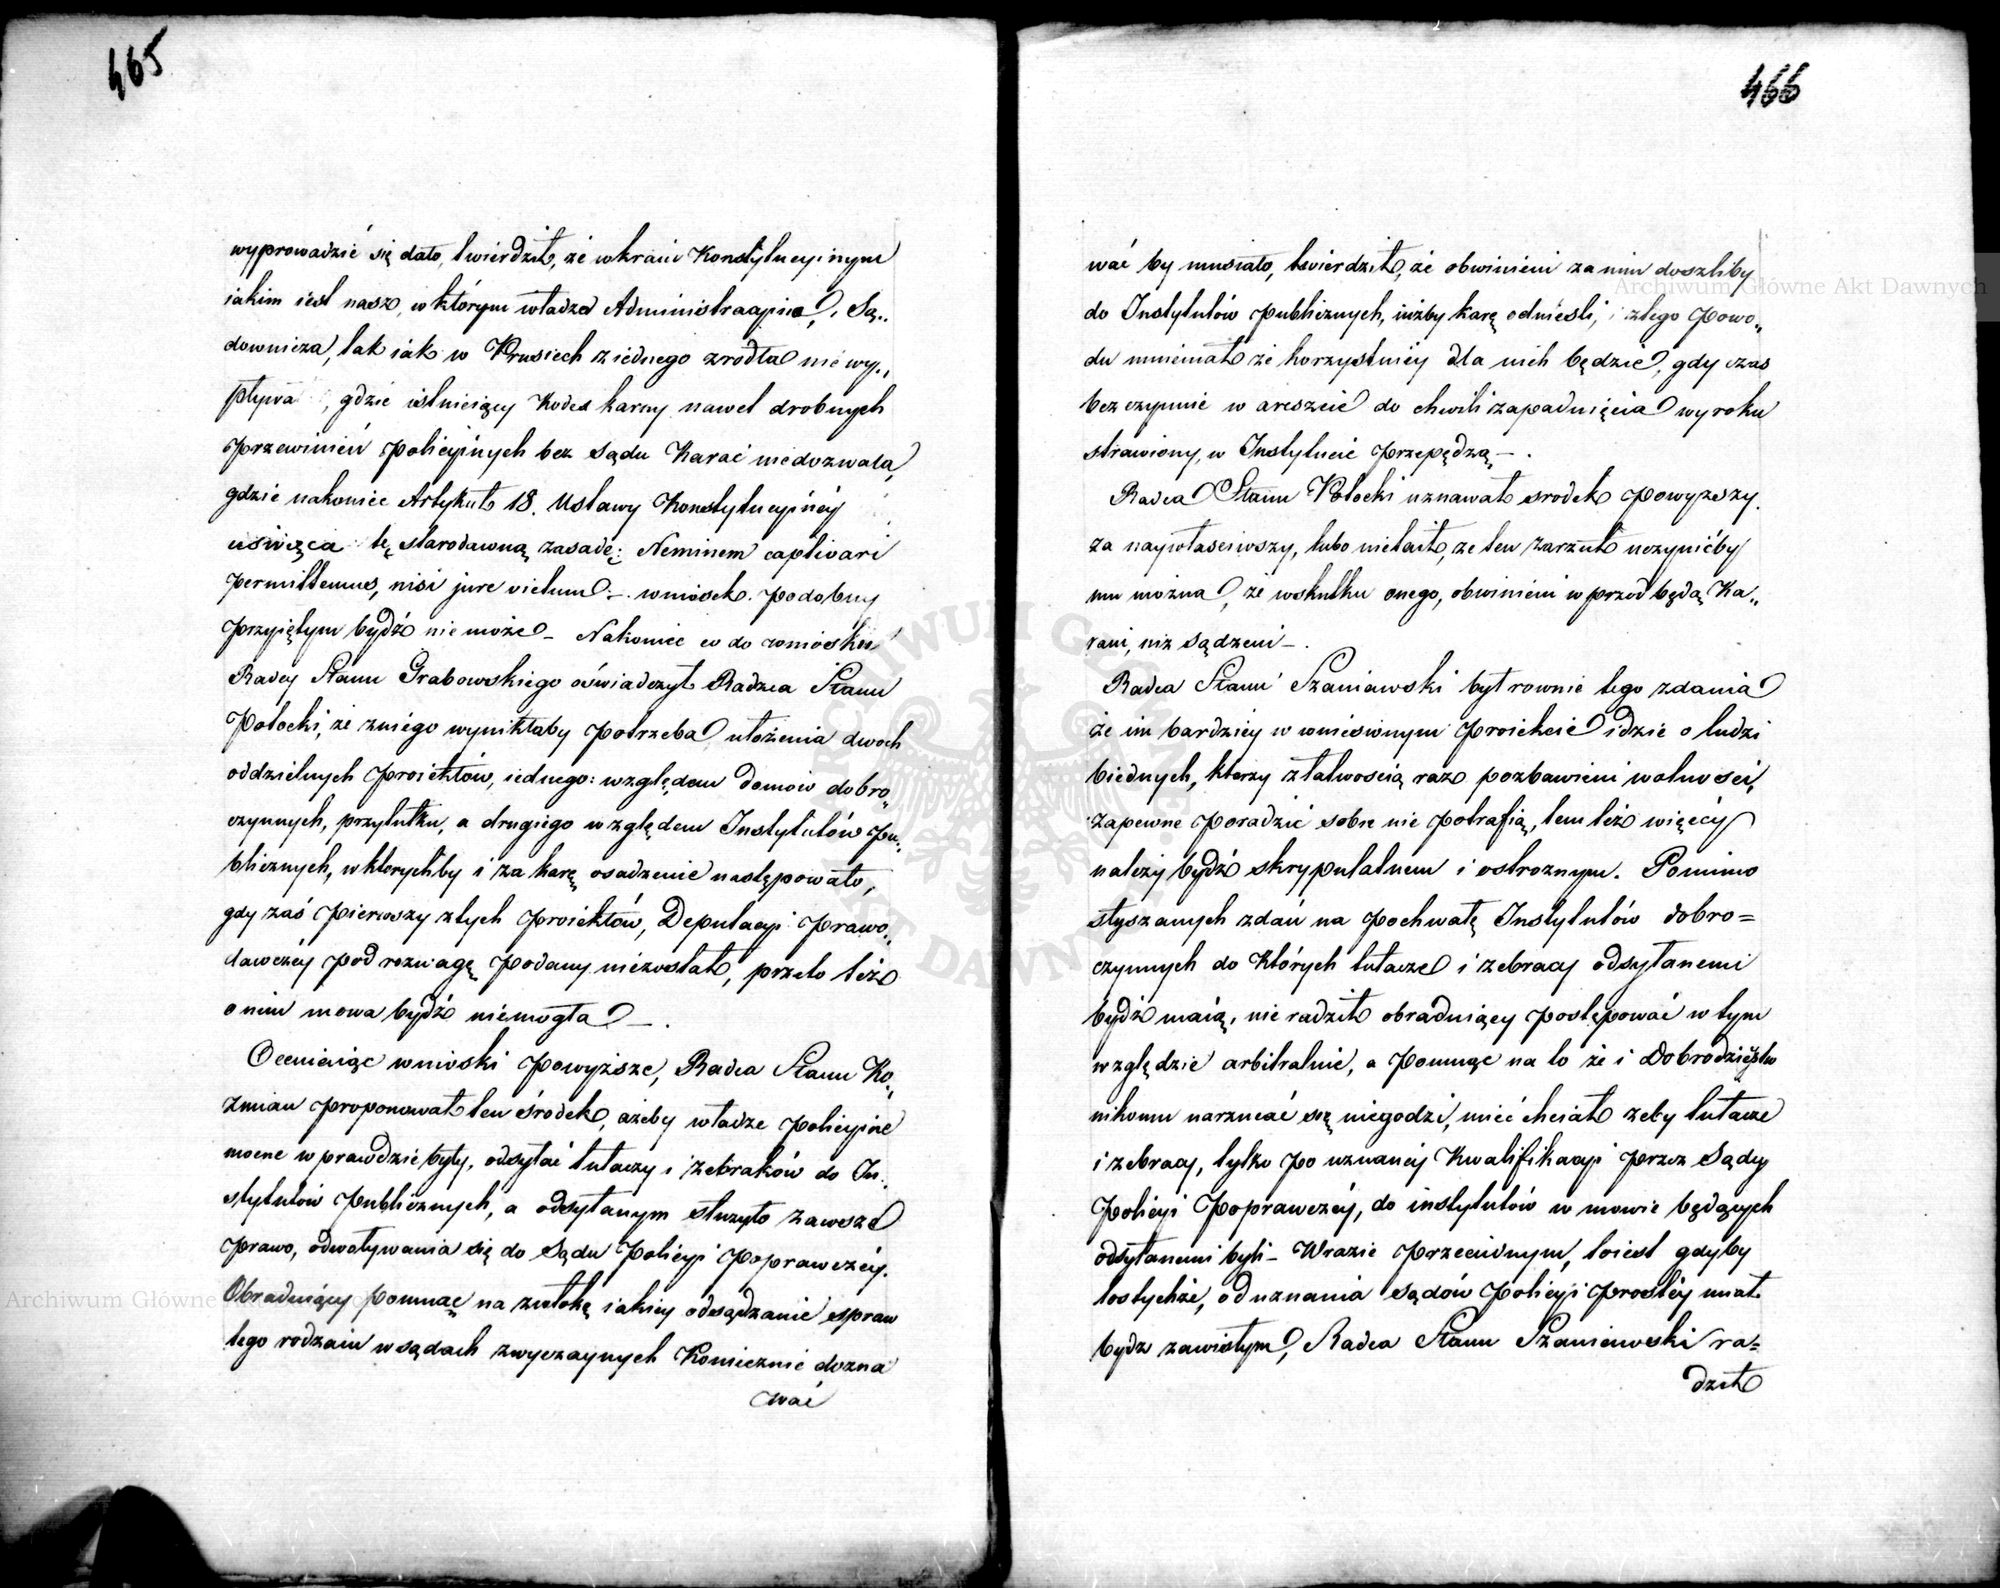 465
wyprowadzić się dało, twierdził, że wkraiu Konstytucyinym
iakim iest nasz, w którym władza Administracyina, i Są„
downicza, tak iak w Prusiech z iednego zrodła nie wy„
pływa, gdzie istnieiący Kodex karny nawet drobnych
przewinień policyinych bez Sądu Karać niedozwala,
gdzie nakoniec Artykuł 18. Ustawy Konstytucyinéy
uświęca tę starodawną zasadę: Neminem captivari
permittemus, nisi jure victum –. wniosek podobny
przyiętym bydź nie może – Nakoniec co do wniosku
Radcy Stanu Grabowskiego oświadczył Radzca Stanu
Potocki, że zniego wynikłaby potrzeba ułożenia dwoch
oddzielnych proiektów, iednego: względem Domów dobro„
czynnych, przytułku, a drugiego względem Instytutów pu„
blicznych, wktorychby i za karę osadzenie następowało,
gdy zaś pierwszy ztych proiektów, Deputacyi Prawo„
dawczéy pod rozwagę podany niezostał, przeto też
o nim mowa bydź niemogła –.
Oceniaiąc wnioski powyższe, Radca Stanu Ko„
zmian proponował ten środek, ażeby władze policyine
mocne wprawdzie były, odsyłać tułaczy i żebraków do In„
stytutów publicznych, a odsyłanym służyło zawsze
prawo, odwoływania się do Sądu Policyi Poprawczéy.
Obraduiący pomnąc na zwłokę iakiey odsądzanie spraw
tego rodzaiu wsądach zwyczaynych Koniecznie dozna
wać
466
wać by musiało, twierdził, że obwinieni zanim doszliby
do Instytutów publicznych, iużby karę odnieśli, i ztego powo„
du mniemał że korzystniéy dla nich będzie, gdy czas
bezczynnie w areszcie do chwili zapadnięcia wyroku
strawiony, w Instytucie przepędzą –.
Radca Stanu Potocki uznawał srodek powyższy
za naywłaściwszy, lubo nietaił, że ten zarzut uczynićby
mu można, że wskutku onego, obwinieni wprzod będą Ka„
rani, niz sądzeni –.
Radca Stanu Szaniawski był rownie tego zdania
że im bardziéy w wniesionym proiekcie idzie o ludzi
biednych, ktorzy złatwością raz pozbawieni wolności,
zapewne poradzić sobie nie potrafią, tem też więcéy
należy bydź skrypulatnem i ostroznym. Pomimo
słyszanych zdań na pochwałę Instytutów dobro=
czynnych do Których tułacze i żebracy odsyłanemi
bydź maią, nie radził obraduiący postępować w tym
względzie arbitralnie, a pomnąc na to że i Dobrodzieystw
nikomu narzucać się niegodzi, mieć chciał zeby tułacze
i żebracy, tylko po uznanéy Kwalifikacyi przez Sądy
Policyi Poprawczéy, do instytutów w mowie będących
odsyłanemi byli – Wrazie przeciwnym, toiest gdyby
los tychże, od uznania Sądów Policyi prostéy miał
bydź zawisłym, Radca Stanu Szaniawski ra=
dził